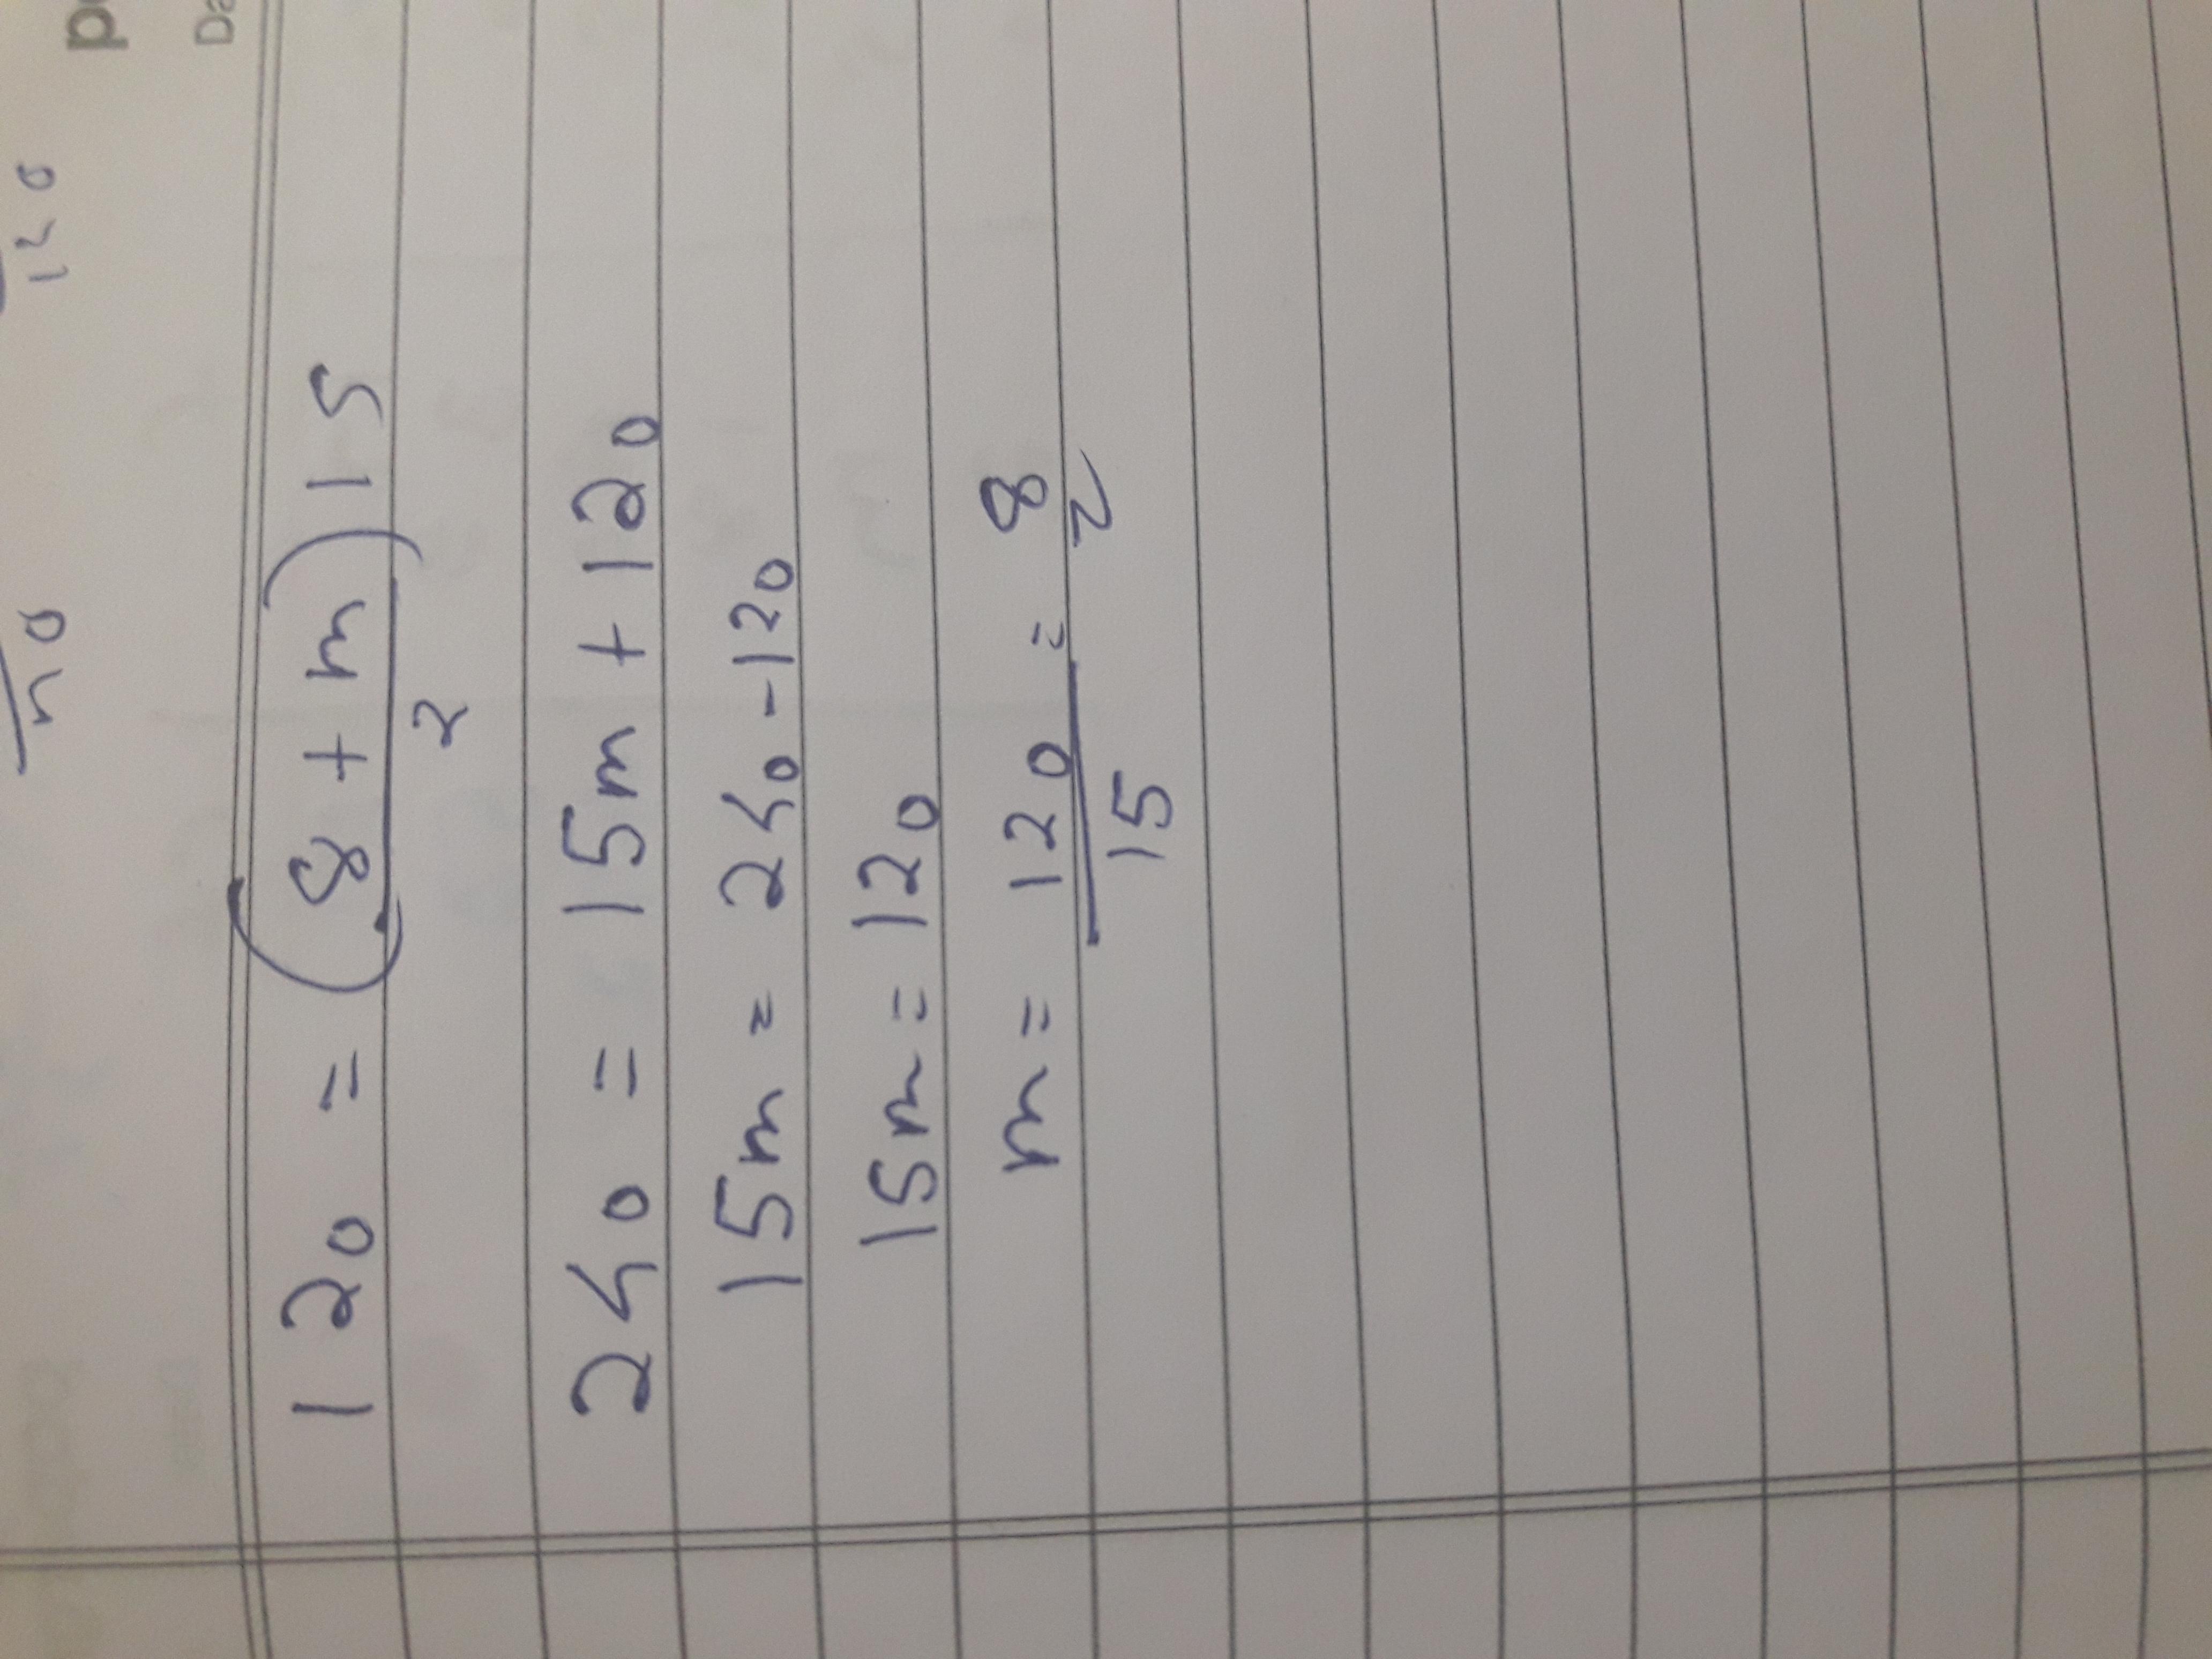 120
120 = (8 + m) 15
2
240 = 15m + 120
15m = 240 - 120
15m = 120
m = 120 = 8
15